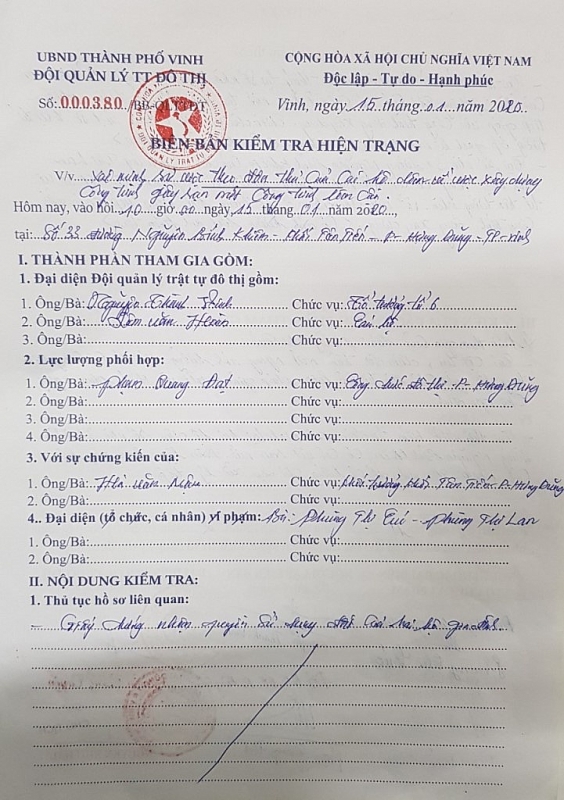 UBND THÀNH PHỐ VINH
ĐỘI QUẢN LÝ TT ĐÔ THỊ
Số: 000380 /BB-QLTTĐT
CỘNG HÒA XÃ HỘI CHỦ NGHĨA VIỆT NAM
Độc lập - Tự do - Hạnh phúc
Vinh, ngày 15 tháng 01 năm 2020
BIÊN BẢN KIỂM TRA HIỆN TRẠNG
V/v theo đơn thư của các hộ dân về việc xây dựng
Công trình gây lún nứt Công trình lân cận.
Hôm nay, vào hồi 10 giờ 00 ngày 15 tháng 01 năm 2020,
tại: Số 33 đường Nguyễn Bỉnh Khiêm - Khối Tân Tiến - P. Hưng Dũng - TP-Vinh
I. THÀNH PHẦN THAM GIA GỒM:
1. Đại diện Đội quản lý trật tự đô thị gồm:
1. Ông/Bà: Nguyễn Chức vụ: Tổ trưởng tổ 6
2. Ông/Bà: văn Chức vụ: Cán bộ
3. Ông/Bà: Chức vụ:
2. Lực lượng phối hợp:
1. Ông/Bà: Phạm Quang Đạt Chức vụ: Công chức đô thị - P- Hưng Dũng
2. Ông/Bà: Chức vụ:
3. Ông/Bà: Chức vụ:
4. Ông/Bà: Chức vụ:
3. Với sự chứng kiến của:
1. Ông/Bà: Hà văn Chức vụ: Khối trưởng khối Tân Tiến P- Hưng Dũng
2. Ông/Bà: Chức vụ:
4.. Đại diện (tổ chức, cá nhân) vi phạm: Bà: Phùng Thị - Phùng Thị Lan
1. Ông/Bà: Chức vụ:
2. Ông/Bà: Chức vụ:
II. NỘI DUNG KIỂM TRA:
1. Thủ tục hồ sơ liên quan:
- Giấy chứng nhận quyền sử dụng đất của hai hộ gia đình.